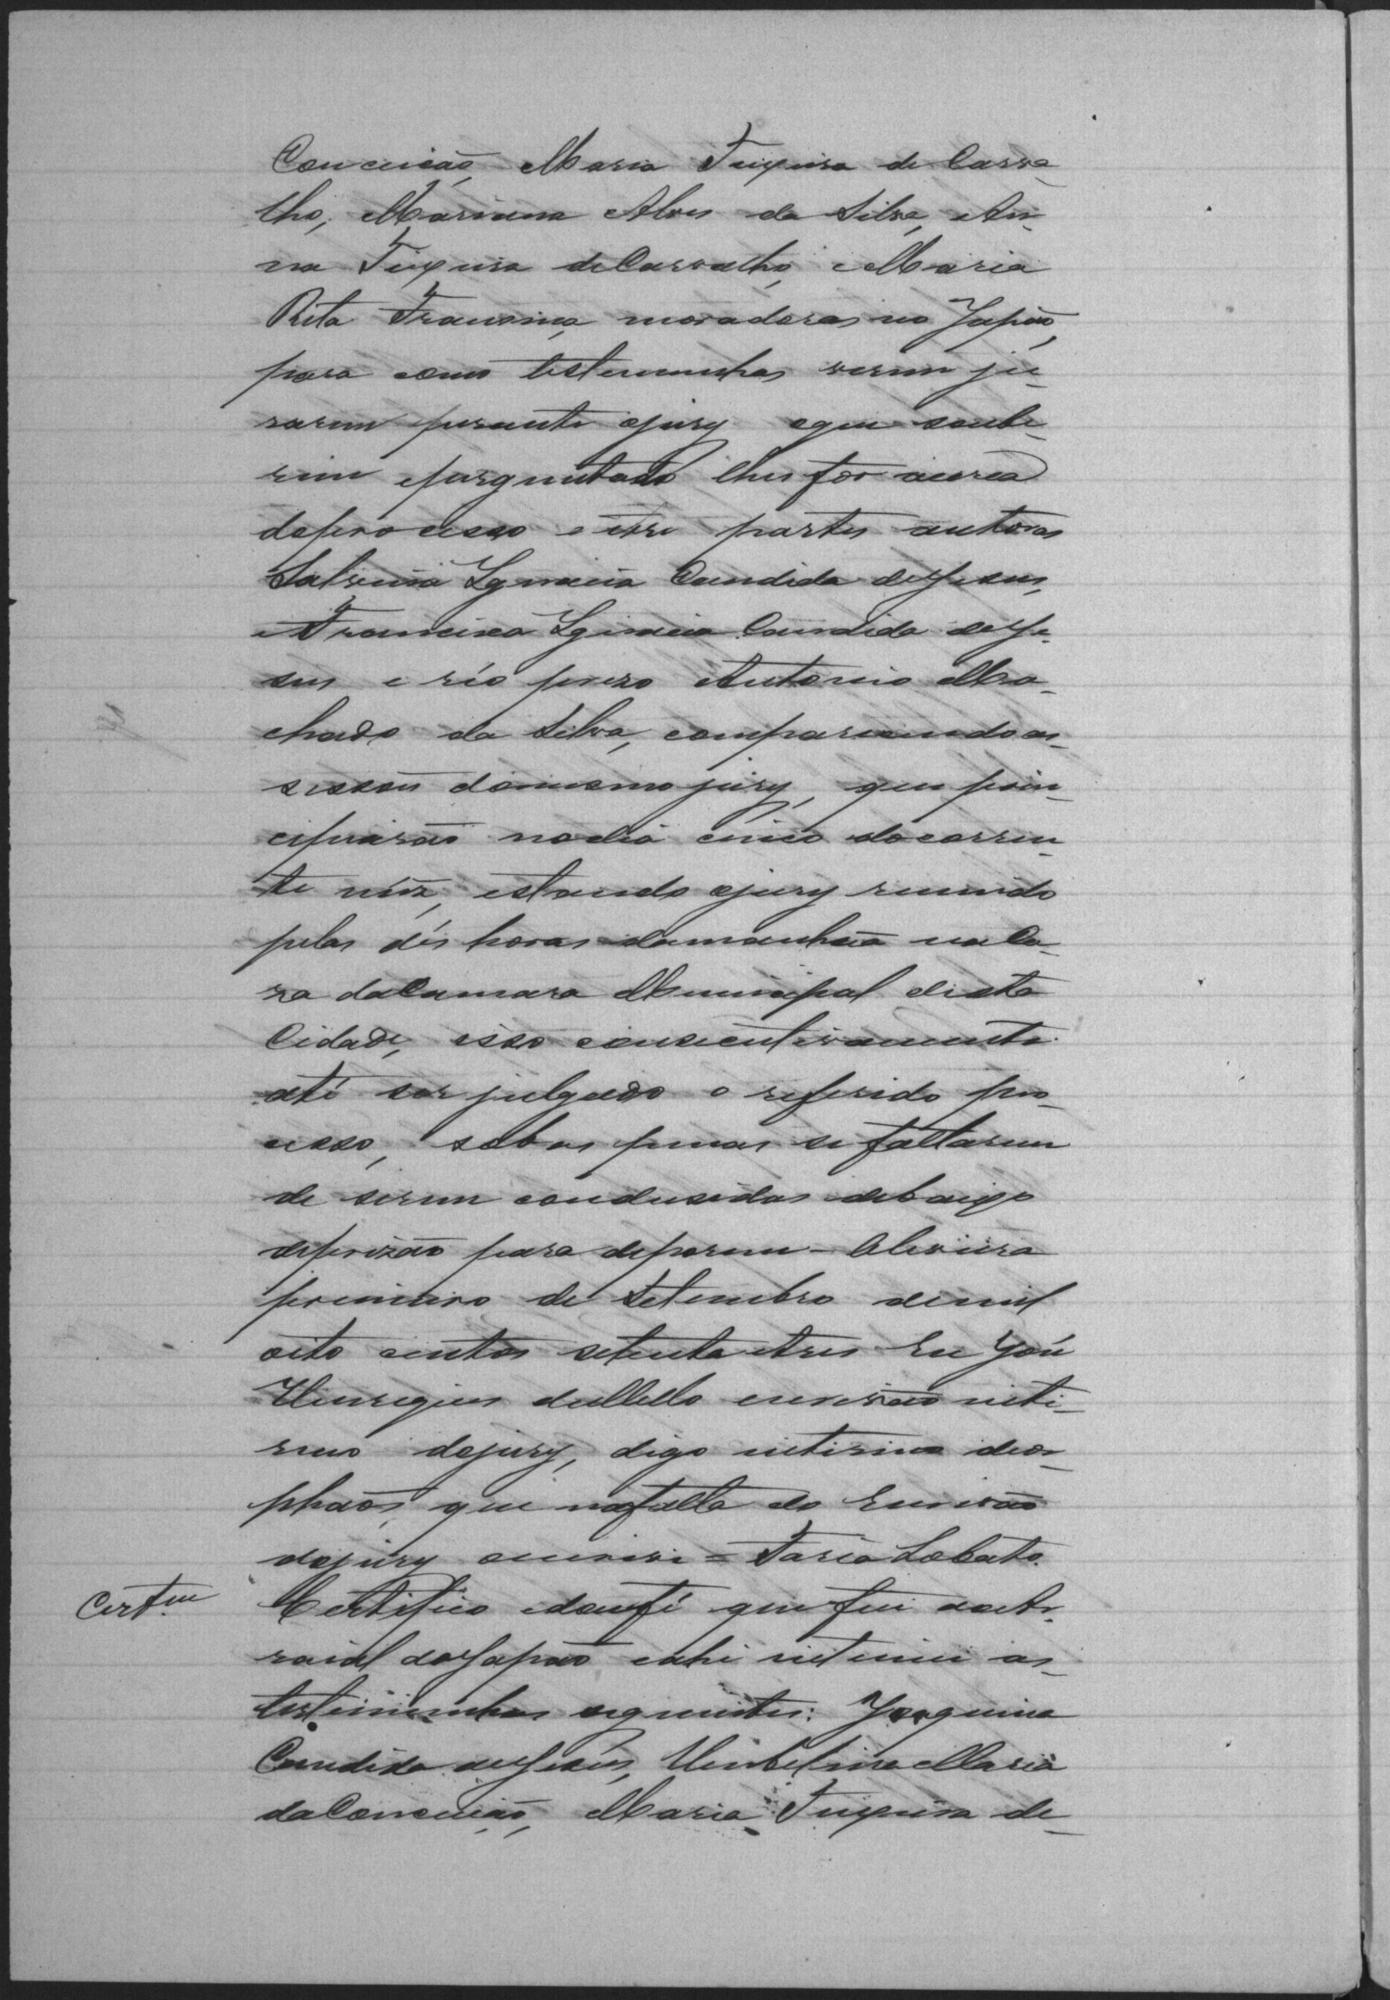 Conceição, Maria Teixeira de Carva
lho, Marianna Alves da Silva, An-
na Teixeira de Carvalho, e Maria
Rita Francisca, moradoras no Japão,
para como testemunhas virem ju-
rarem perante o jury o que soube-
rem e perguntado lhes for acerca
do processo entre partes autoras
Ignacia Candida de Jesus,
e Francisca Ignacia Candida de Je-
sus e réo prezo Antonio Ma-
chado da Silva, comparecendo as
sessões do mesmo jury, que prin-
cipiarão no dia cinco do corren-
te mêz, estando o jury reunido
pelas dés horas da manhã na Ca-
za da Camara Municipal desta
Cidade, isso consecutivamente
até ser julgado o referido pro-
cesso, sob as penas se faltarem
de serem condusidas debaixo
de prizão para deporem - Oliveira
primeiro de Setembro de mil
oito centos setenta e tres Eu José
Henriques de Mello escrivão inte-
rino do jury, digo interino de or-
phãos, que na falta do Escrivão
do jury escrevi = Faria Lobato.
Certam Certifico e dou fé que fui ao Ar-
raial do Japão e ahi intimei as
testemunhas seguintes: Joaquina
Candida de Jesus, Umbelina Maria
da Conceição, Maria Teixeira de-